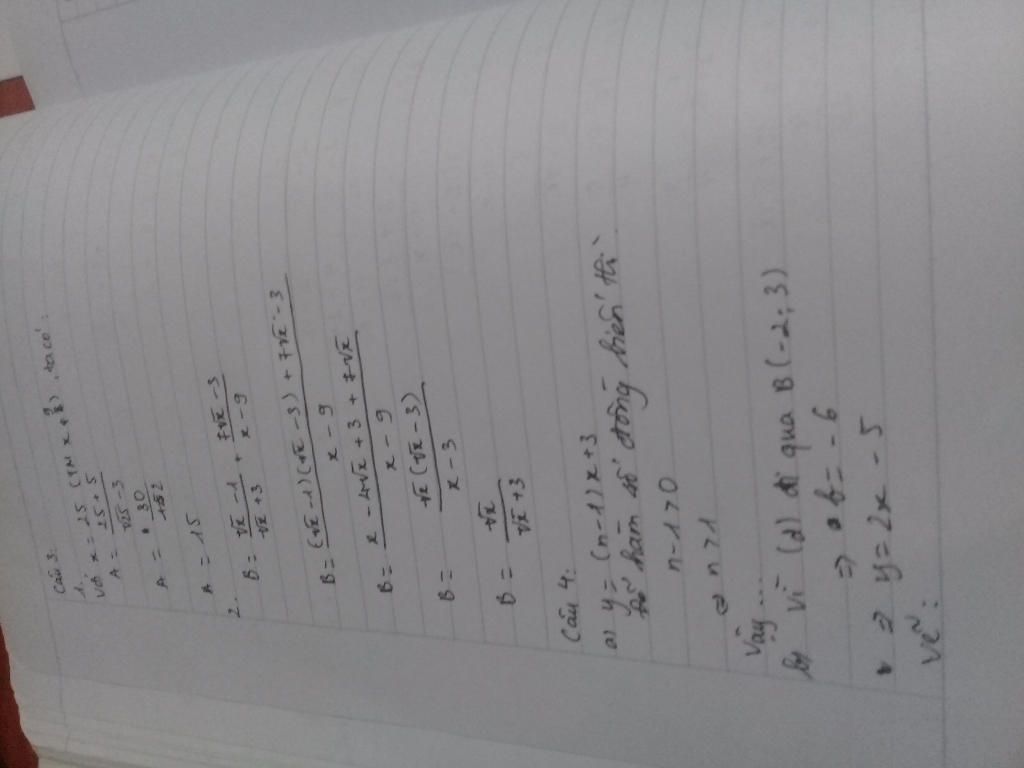 Câu 3.
1.
Với x = 25 (TM x ), ta có:
A = (25 + 5)/(√25 - 3)
A = 30/2
A = 15
2.
B = (√x - 1)/(√x + 3) + (7√x - 3)/(x - 9)
B = ((√x - 1)(√x - 3) + 7√x - 3)/(x - 9)
B = (x - 4√x + 3 + 7√x)/(x - 9)
B = (√x(√x - 3))/(x - 3)
B = √x/(√x + 3)
Câu 4.
a) y = (n - 1)x + 3
hàm số đồng biến thì
n - 1 > 0
⇔ n > 1
Vậy ...
b) Vì (d) đi qua B(-2; 3)
⇒ b = - 6
⇒ y = 2x - 5
Vẽ: